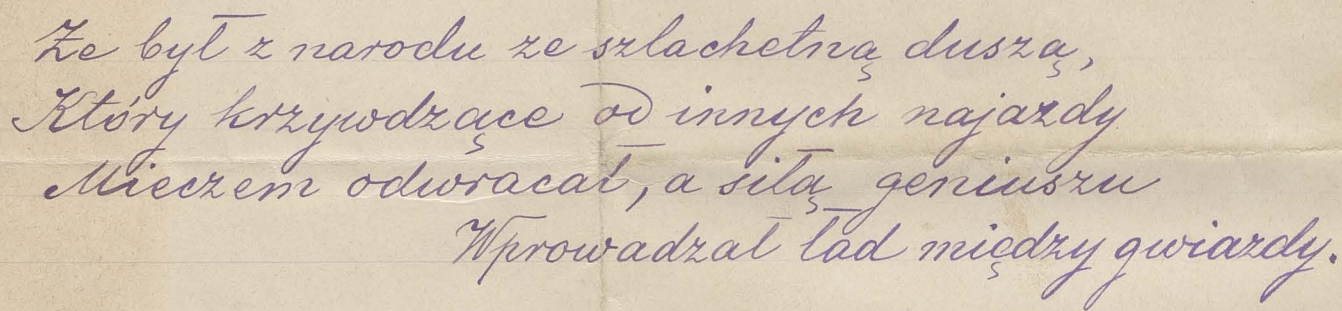 Że był z narodu ze szlachetną duszą,
Który krzywdzące od innych najazdy
Mieczem odwracał, a siłą geniuszu
Wprowadzał ład między gwiazdy.